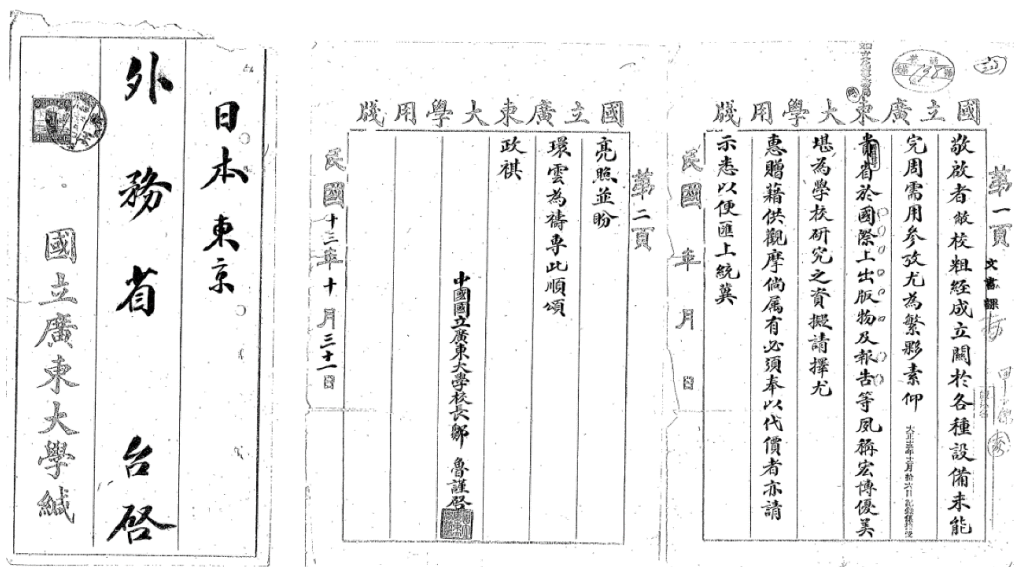 國立廣東大學用牋
第一頁
文書課
敬啟者敝校粗經成立關於各種設備未能
完周需用參攷尤為繁夥素仰
貴省於國際上出版物及報告等夙稱宏博優美
堪為學校研究之資擬請擇尤
惠贈藉供觀摩倘属有必須奉以代價者亦請
示悉以便匯上統冀
民國 年 月 日
國立廣東大學用牋
第二頁
亮照並盼
環雲為禱專此順頌
政祺
中國國立廣東大學校長鄒 魯謹啓
民國十三年十月三十一日
日本東京
外務省 台啓
國立廣東大學緘